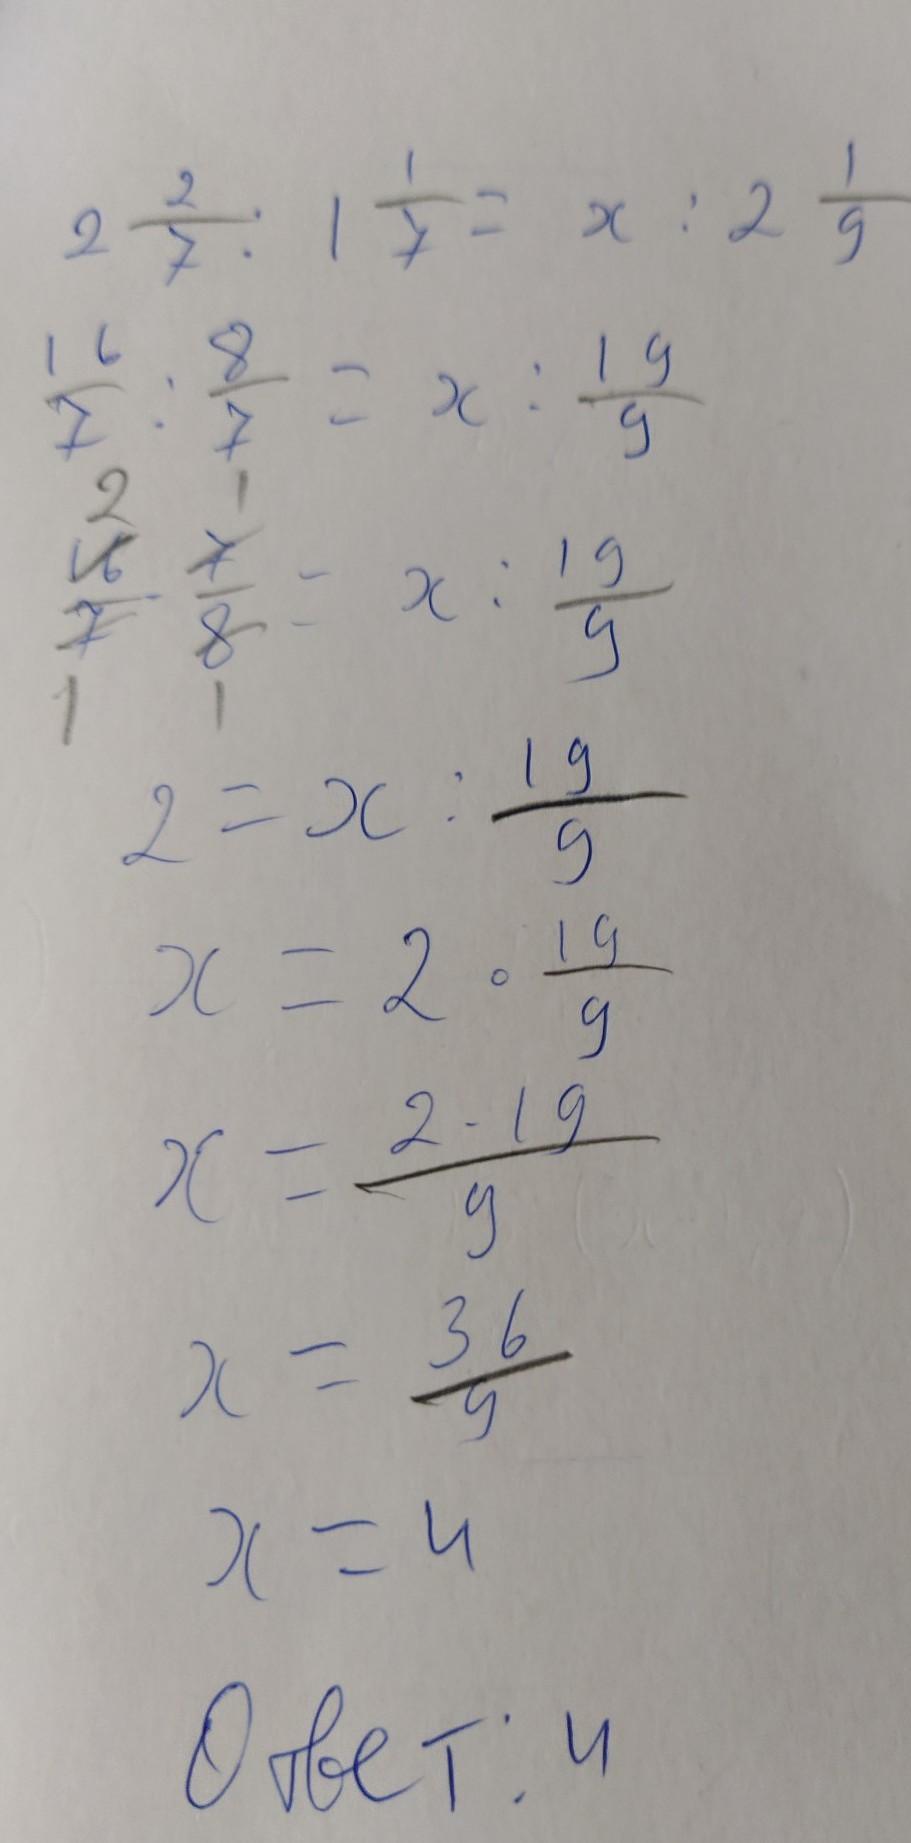 2 2/7 : 1 1/7 = x : 2 1/9
16/7 : 8/7 = x : 19/9
2 1
16/7 · 7/8 = x : 19/9
1 1
2 = x : 19/9
x = 2 · 19/9
x = 2 · 19/9
x = 36/9
x = 4
Ответ: 4